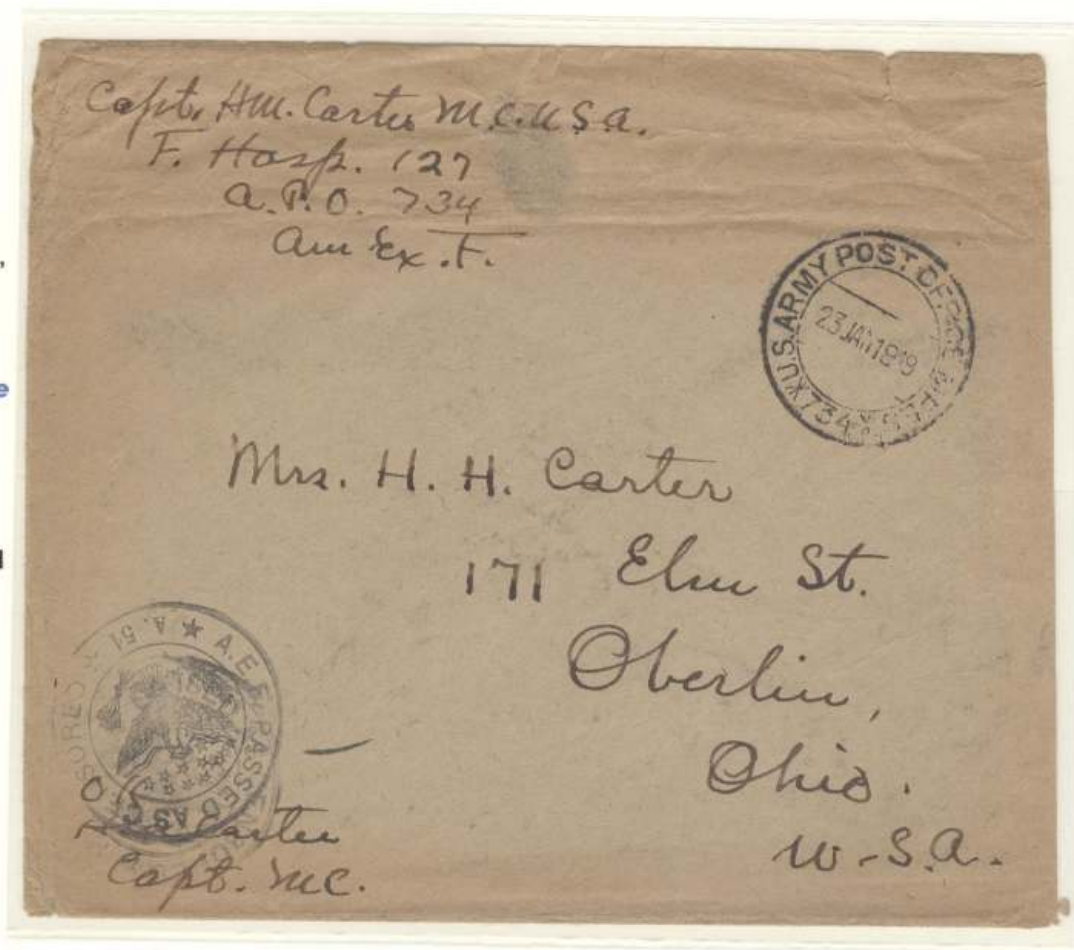 Capt. HM. Carter M.C.U.S.A.
F. Hosp. 127
A.P.O. 734
Am Ex. F.
U.S. ARMY POST OFFICE M.P.E.S. 734
23 JAN 1919
Mrs. H. H. Carter
171 Elm St.
Oberlin,
Ohio.
U.S.A.
A.E.F. PASSED AS CENSORED A.51
OK
Carter
Capt. MC.